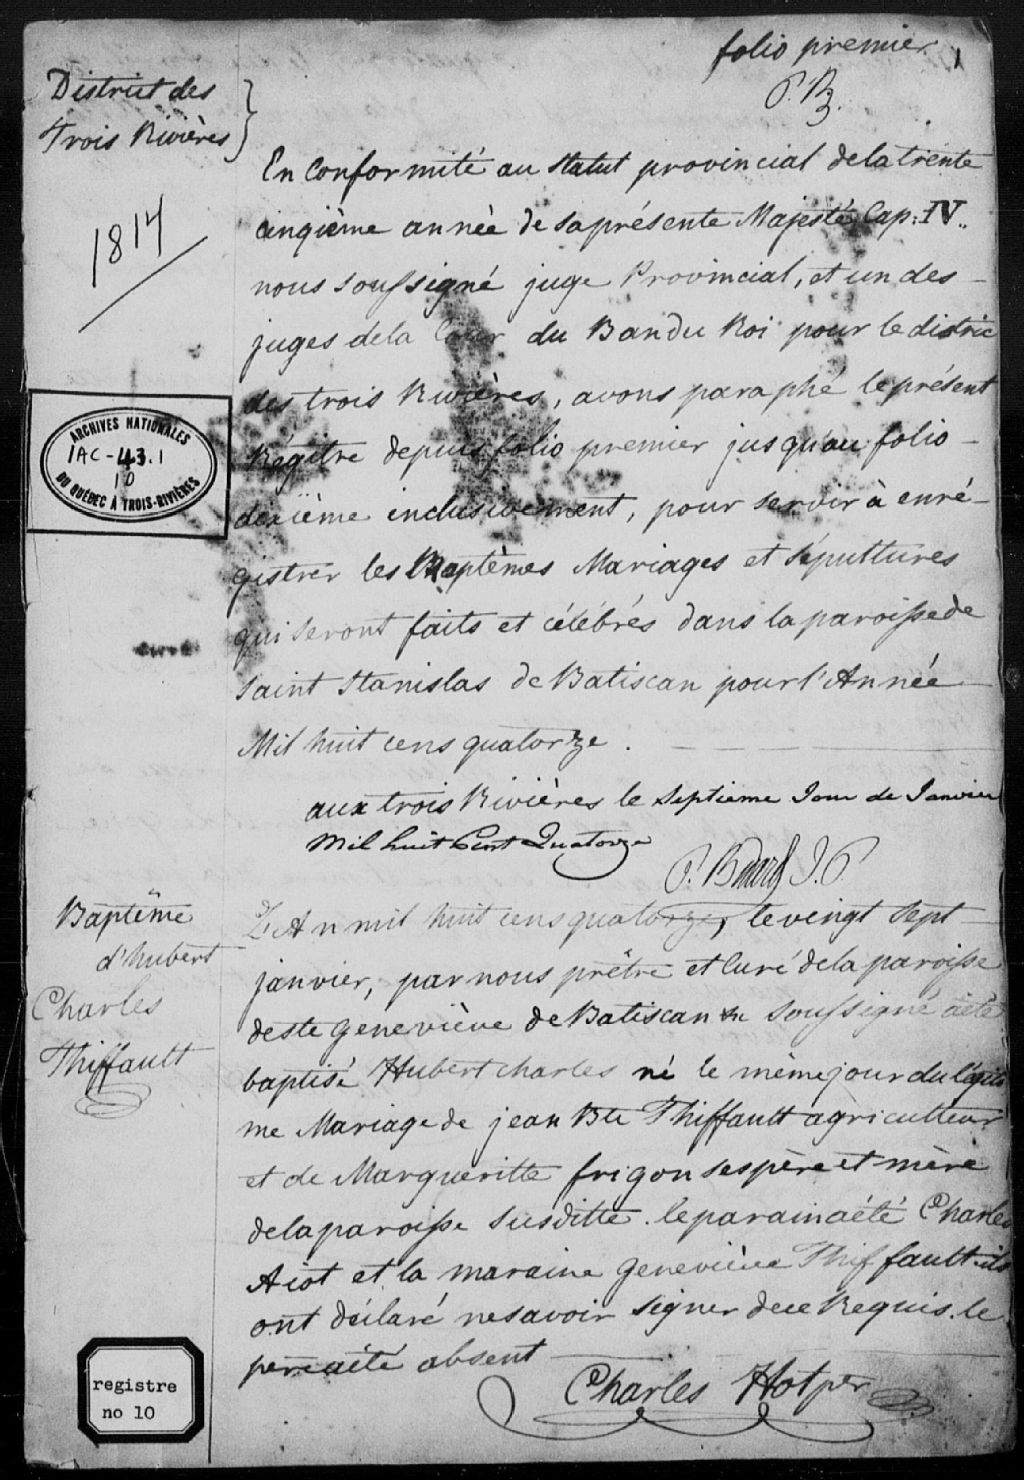 folio premier 1
P. B.
District des
Trois Rivières
1814
En conformité au statut provincial de la trente
cinqième année de sa présente Majesté Cap: IV.
nous soussigné juge Provincial, et un des
juges de la Cour du Ban du Roi pour le distric
des trois Rivières, avons paraphé le présent
Régître depuis folio premier jusqu'au folio
deuxième inclusivement, pour servir à enré-
gistrer les Baptêmes Mariages et Sépultures
qui seront faits et célébrés dans la paroisse de
saint Stanislas de Batiscan pour l'Année
Mil huit cens quatorze.
aux trois Rivières le septieme Jour de Janvier
Mil huit Cent Quatorze
P. Bedard J. P.
ARCHIVES NATIONALES
1AC-43.1
10
DU QUÉBEC À TROIS-RIVIÈRES
Baptême
d'hubert
Charles
Thiffault
L'An mil huit cens quatorze, le vingt sept
janvier, par nous prêtre et curé de la paroisse
de ste geneviève de Batiscan soussigné a été
baptisé Hubert charles né le même jour du légiti
me Mariage de jean Bte Thiffault agriculteur
et de Margueritte frigon ses père et mère
de la paroisse susditte. le parain a été Charles
Aiot et la maraine geneviève Thiffault ils
ont déclaré ne savoir signer de ce Requis. le
pere a été absent
Charles Hotper
registre
no 10